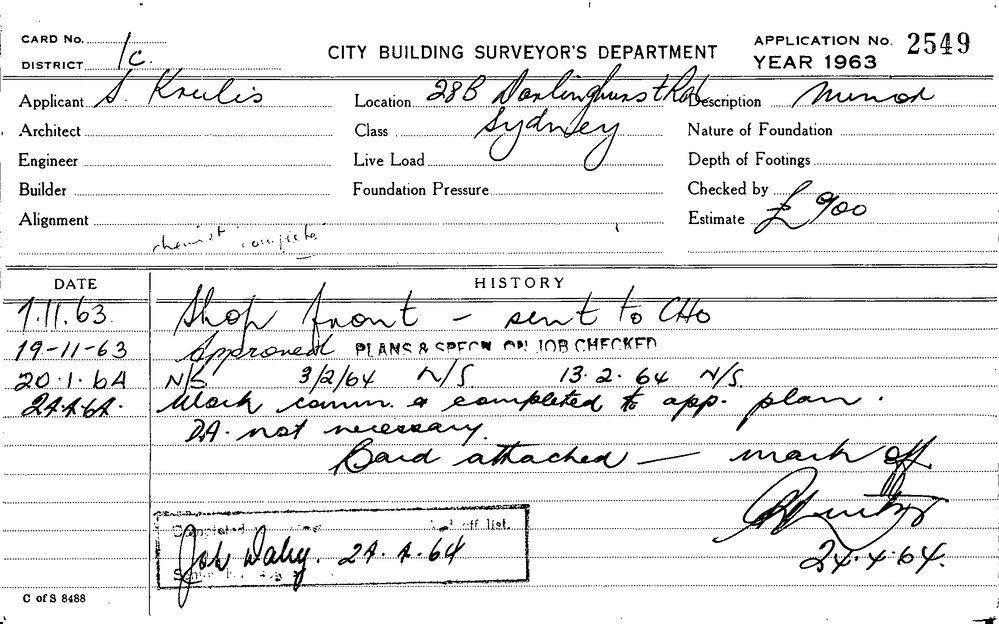 CARD No. CITY BUILDING SURVEYOR'S DEPARTMENT APPLICATION No. 2549
DISTRICT 1c. YEAR 1963
Applicant S. Kreilis Location 28B Darlinghurst Rd Description Minor
Architect Class Sydney Nature of Foundation
Engineer Live Load Depth of Footings
Builder Foundation Pressure Checked by
Alignment Estimate £900
chemist
DATE HISTORY
7.11.63 Shop front - sent to CHO
19-11-63 Approved PLANS & SPECN ON JOB CHECKED
20.1.64 N/S 3/2/64 N/S 13.2.64 N/S.
24.4.64. Work comm. & completed to app. plan.
D.A. not necessary.
Card attached — mark off
24.4.64.
Completed off list.
Job Daley. 24.4.64
C of S 8488